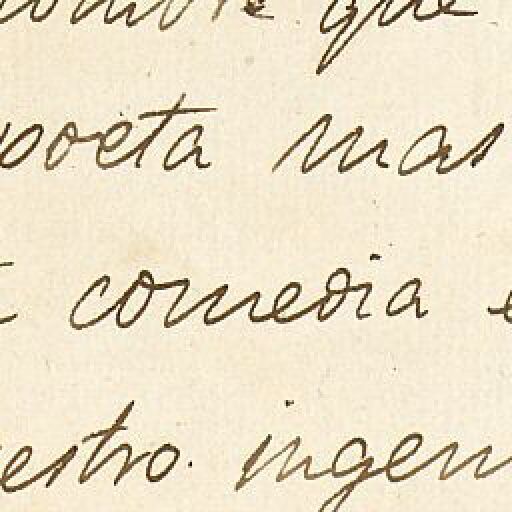 que
poeta mas
comedia
estro. ingen